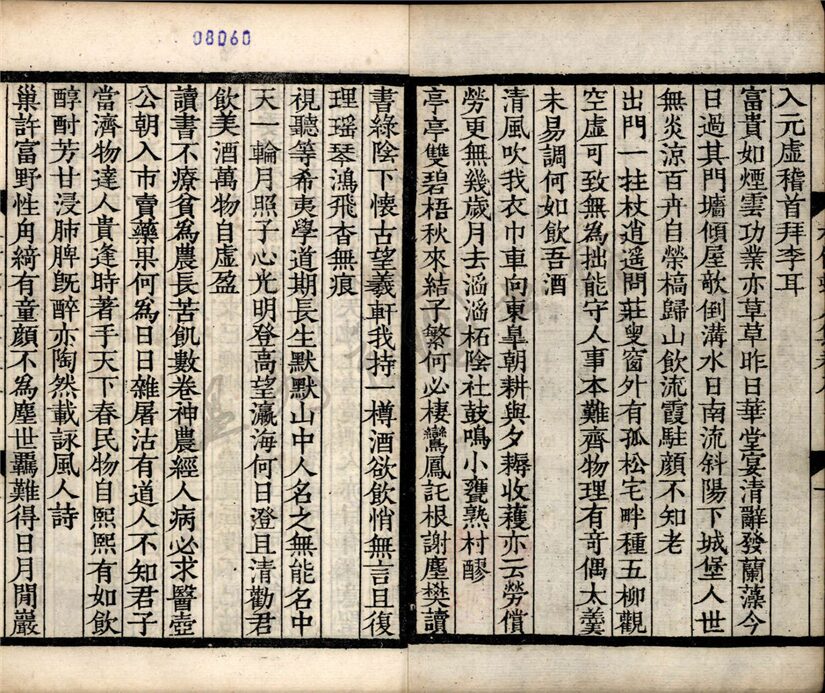 08060
入元虛稽首拜李耳
富貴如煙雲功業亦草草昨日華堂宴清辭發蘭藻今
日過其門墻傾屋欹倒溝水日南流斜陽下城堡人世
無炎涼百卉自榮槁歸山飲流霞駐顏不知老
出門一拄杖逍遥問莊叟窗外有孤松宅畔種五柳觀
空虛可致無為拙能守人事本難齊物理有奇偶太羹
未易調何如飲吾酒
清風吹我衣巾車向東皐朝耕與夕耨收穫亦云勞償
勞更無幾歲月去滔滔柘陰社鼓鳴小甕熟村醪
亭亭雙碧梧秋來結子繁何必棲鸞鳳託根謝塵樊讀
書綠陰下懷古望羲軒我持一樽酒欲飲悄無言且復
理瑶琴鴻飛杳無痕
視聽等希夷學道期長生默默山中人名之無能名中
天一輪月照子心光明登高望瀛海何日澄且清勸君
飲美酒萬物自虛盈
讀書不療貧為農長苦飢數卷神農經人病必求醫壺
公朝入市賣藥果何為日日雜屠沽有道人不知君子
當濟物達人貴逢時著手天下春民物自熙熙有如飲
醇酎芳甘浸肺脾旣醉亦陶然載詠風人詩
巢許富野性甪綺有童顏不為塵世羈難得日月閒巖